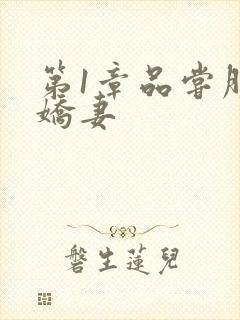 第1章品尝
娇妻
磐生莲儿